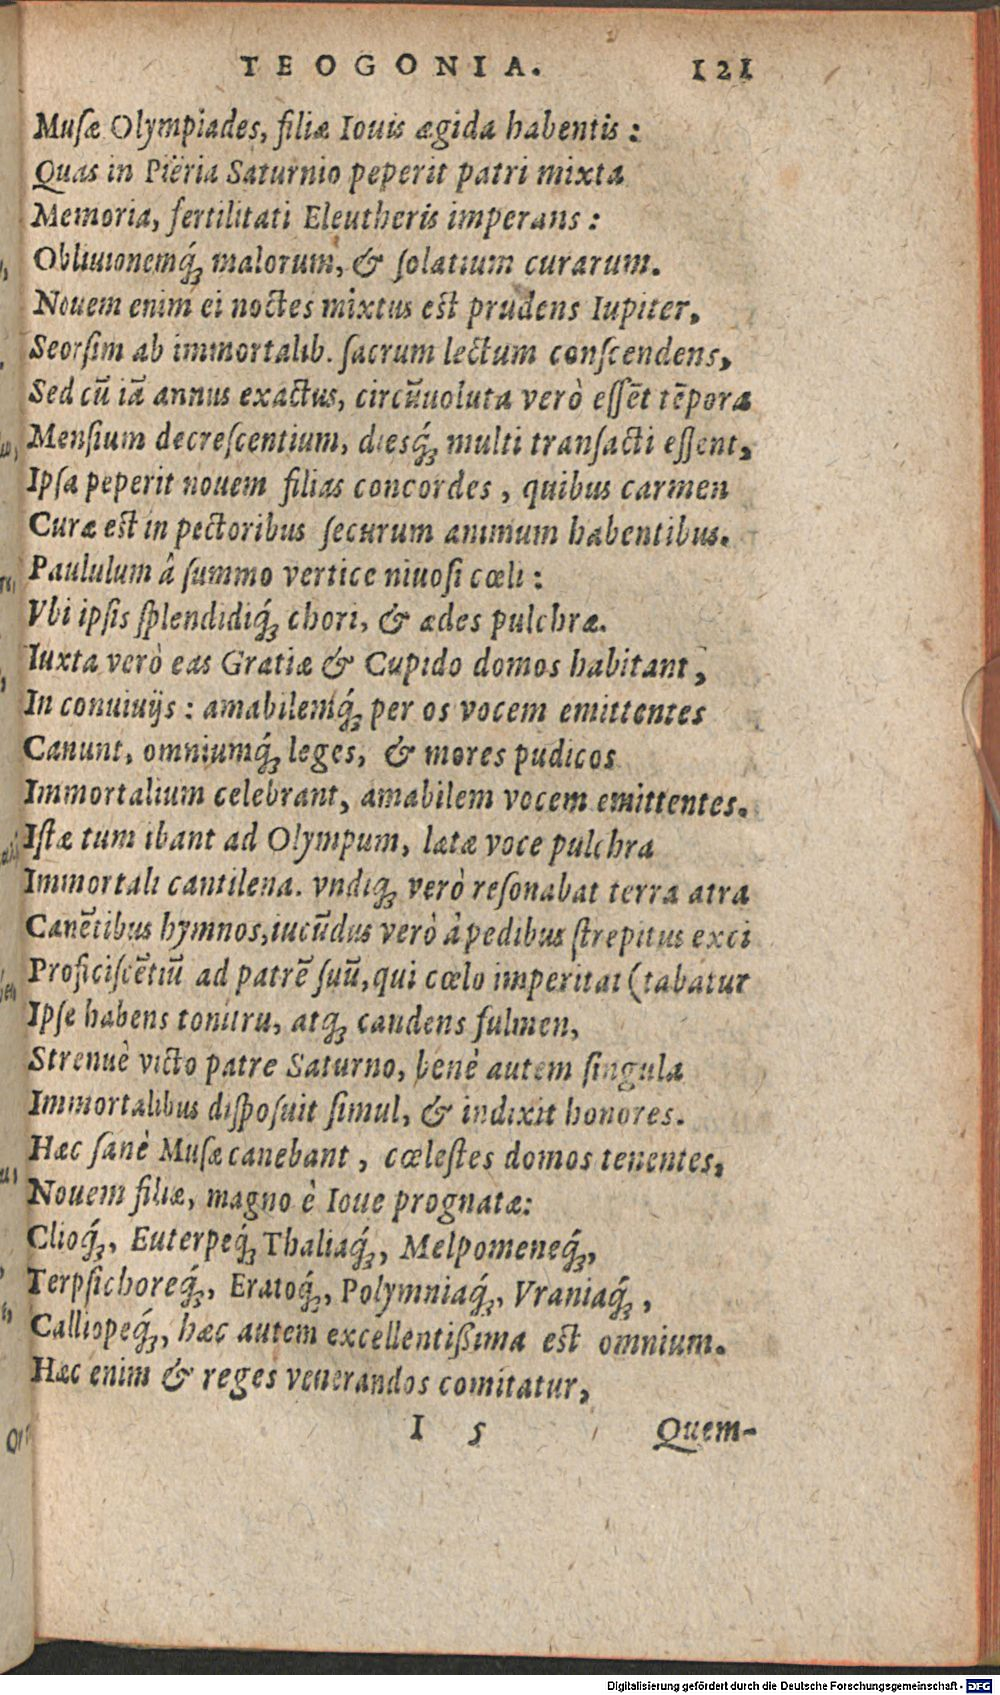 TEOGONIA. 121
Muſæ Olympiades, filiæ Iouis ægida habentis :
Quas in Pïeria Saturnio peperit patri mixta
Memoria, fertilitati Eleutheris imperans :
Obliuionemq́ꝫ malorum, & ſolatium curarum.
Nouem enim ei noctes mixtus eſt prudens Iupiter,
Seorſim ab immortalib. ſacrum lectum conſcendens,
Sed cū iā annus exactus, circūuoluta verò eſſēt tēpora
Menſium decreſcentium, diesq́ꝫ multi tranſacti eſſent,
Ipſa peperit nouem filias concordes , quibus carmen
Curæ eſt in pectoribus ſecurum animum habentibus.
Paululum â ſummo vertice niuoſi cœli :
Vbi ipſis ſplendidiq́ꝫ chori, & ædes pulchræ.
Iuxta verò eas Gratiæ & Cupido domos habitant ,
In conuiuijs : amabilemq́ꝫ per os vocem emittentes
Canunt, omniumq́ꝫ leges, & mores pudicos
Immortalium celebrant, amabilem vocem emittentes.
Iſtæ tum ibant ad Olympum, lætæ voce pulchra
Immortali cantilena. vndiqꝫ verò reſonabat terra atra
Canētibus hymnos, iucūdus verò à pedibus ſtrepitus exci
Proficiſcētiū ad patrē ſuū, qui cœlo imperitat (tabatur
Ipſe habens tonitru, atqꝫ candens fulmen,
Strenuè victo patre Saturno, benè autem ſingula
Immortalibus diſpoſuit ſimul, & indixit honores.
Hæc ſanè Muſæ canebant , cœleſtes domos tenentes,
Nouem filiæ, magno è Ioue prognatæ:
Clioq́ꝫ, Euterpeq́ꝫ Thaliaq́ꝫ, Melpomeneq́ꝫ,
Terpſichoreq́ꝫ, Eratoq́ꝫ, Polymniaq́ꝫ, Vraniaq́ꝫ ,
Calliopeq́ꝫ, hæc autem excellentißima eſt omnium.
Hæc enim & reges venerandos comitatur,
I 5 Quem-
Digitalisierung gefördert durch die Deutsche Forschungsgemeinschaft - DFG